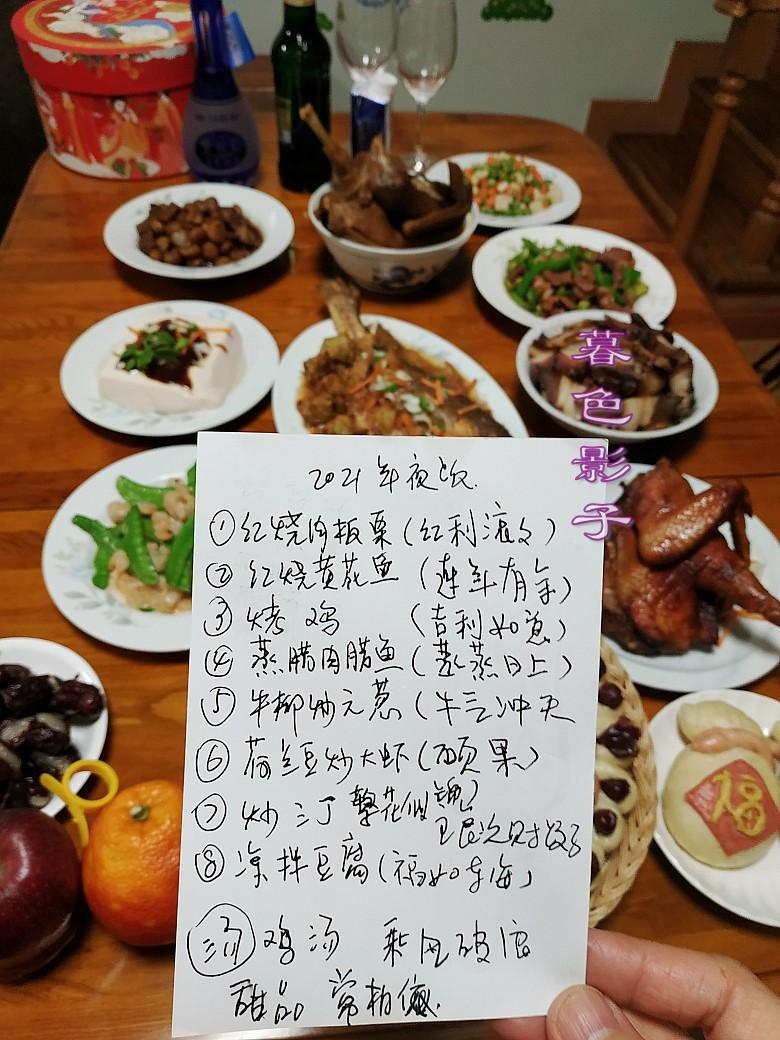 暮色影子
2021年夜饭
①红烧肉板栗（红利滚滚）
②红烧黄花鱼（连年有余）
③烤鸡（吉利如意）
④蒸腊肉腊鱼（蒸蒸日上）
⑤牛柳炒元葱（牛气冲天
⑥荷兰豆炒大虾（硕果）
⑦炒三丁 繁花似锦）
⑧凉拌豆腐（福如东海）
汤 鸡汤 乘风破浪
甜品
福